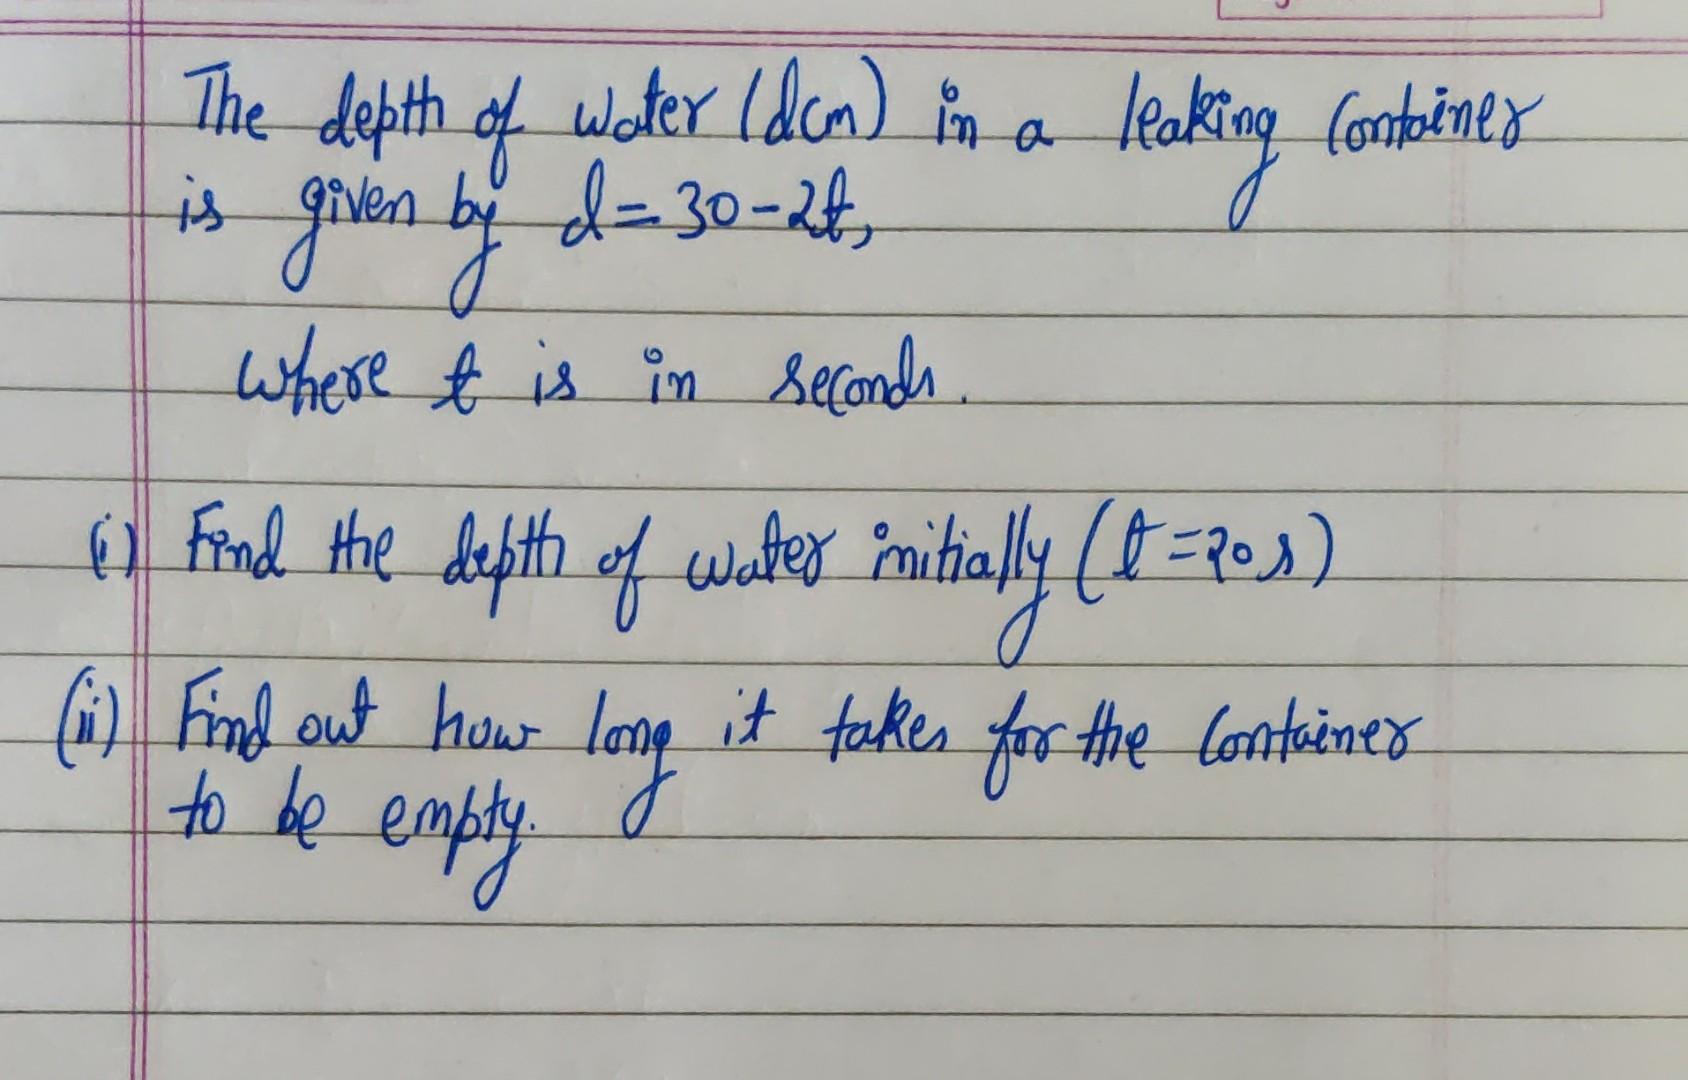 The depth of water (dcm) in a leaking container
is given by d = 30 - 2t,
where t is in seconds.
(i) Find the depth of water initially (t = 20 s)
(ii) Find out how long it takes for the container
to be empty.